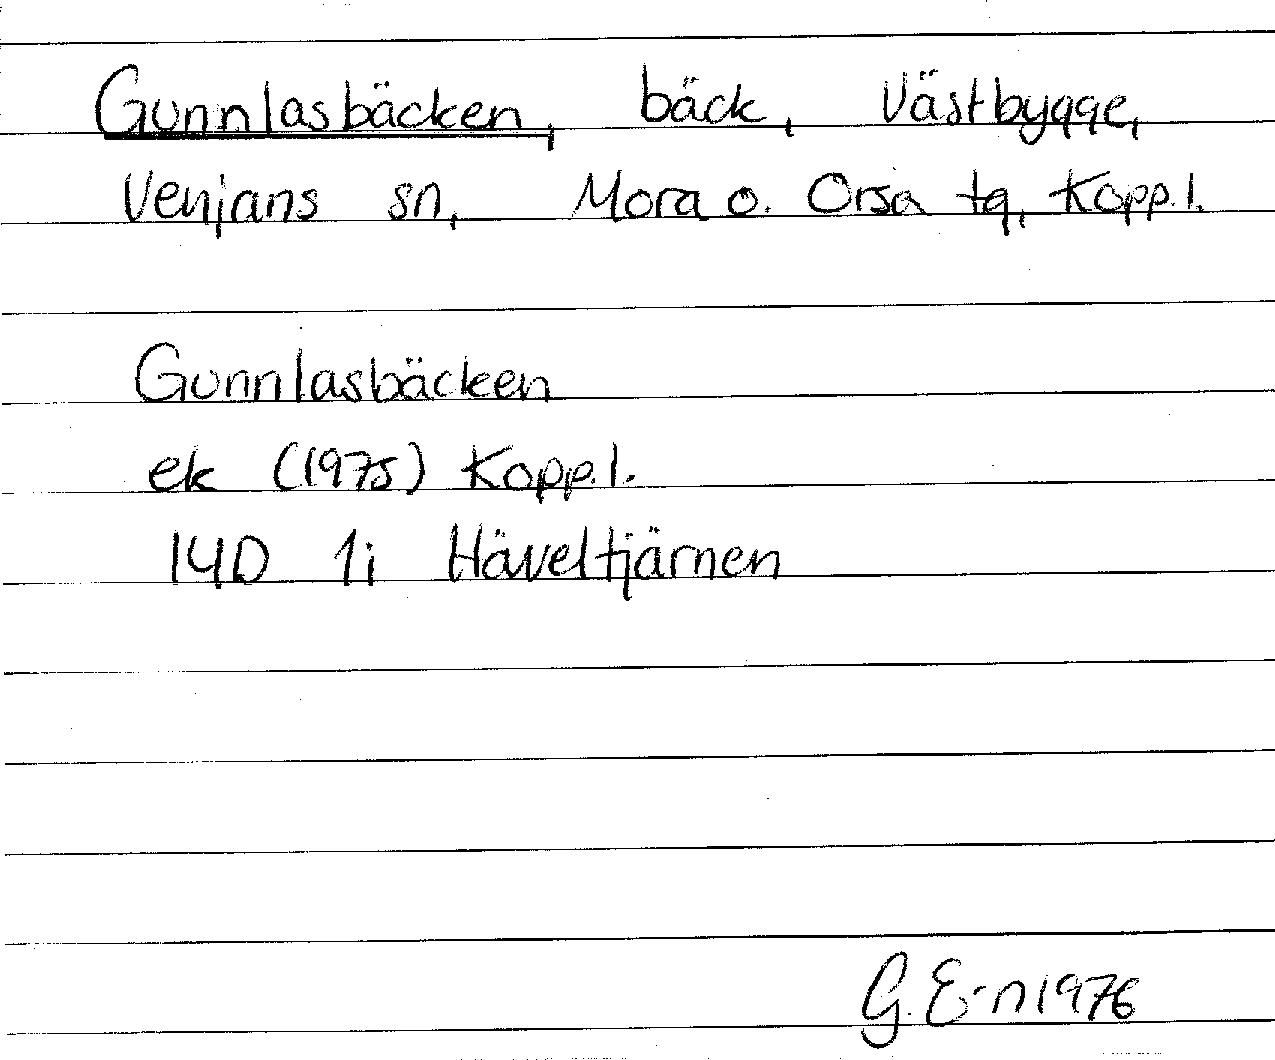 Gunnlasbäcken, bäck, Västbygge,
Venjans sn, Mora o. Orsa tg, Kopp.l.
Gunnlasbäcken
ek (1975) Kopp.l.
14D 1i Häveltjärnen
G. E-n 1976